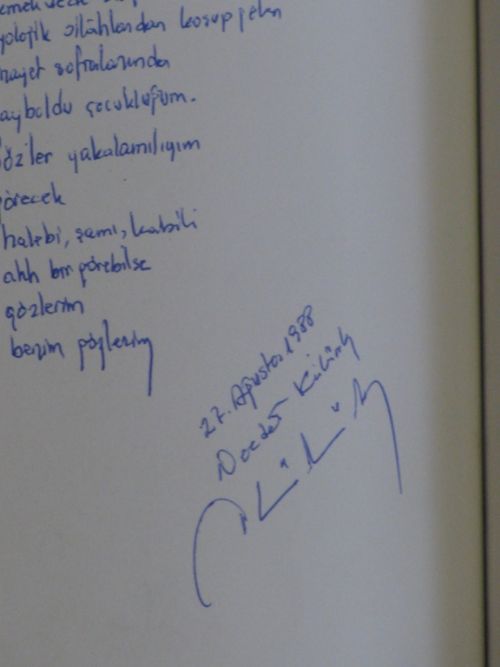 yolojik silâhlardan kosup gelen
hayet sofralarında
ayboldu çocukluğum.
özler yakalamılıyım
örecek
halebi, şamı, kabili
ahh bir görebilse
gözlerim
benim gözlerim
27. Ağustos 1988